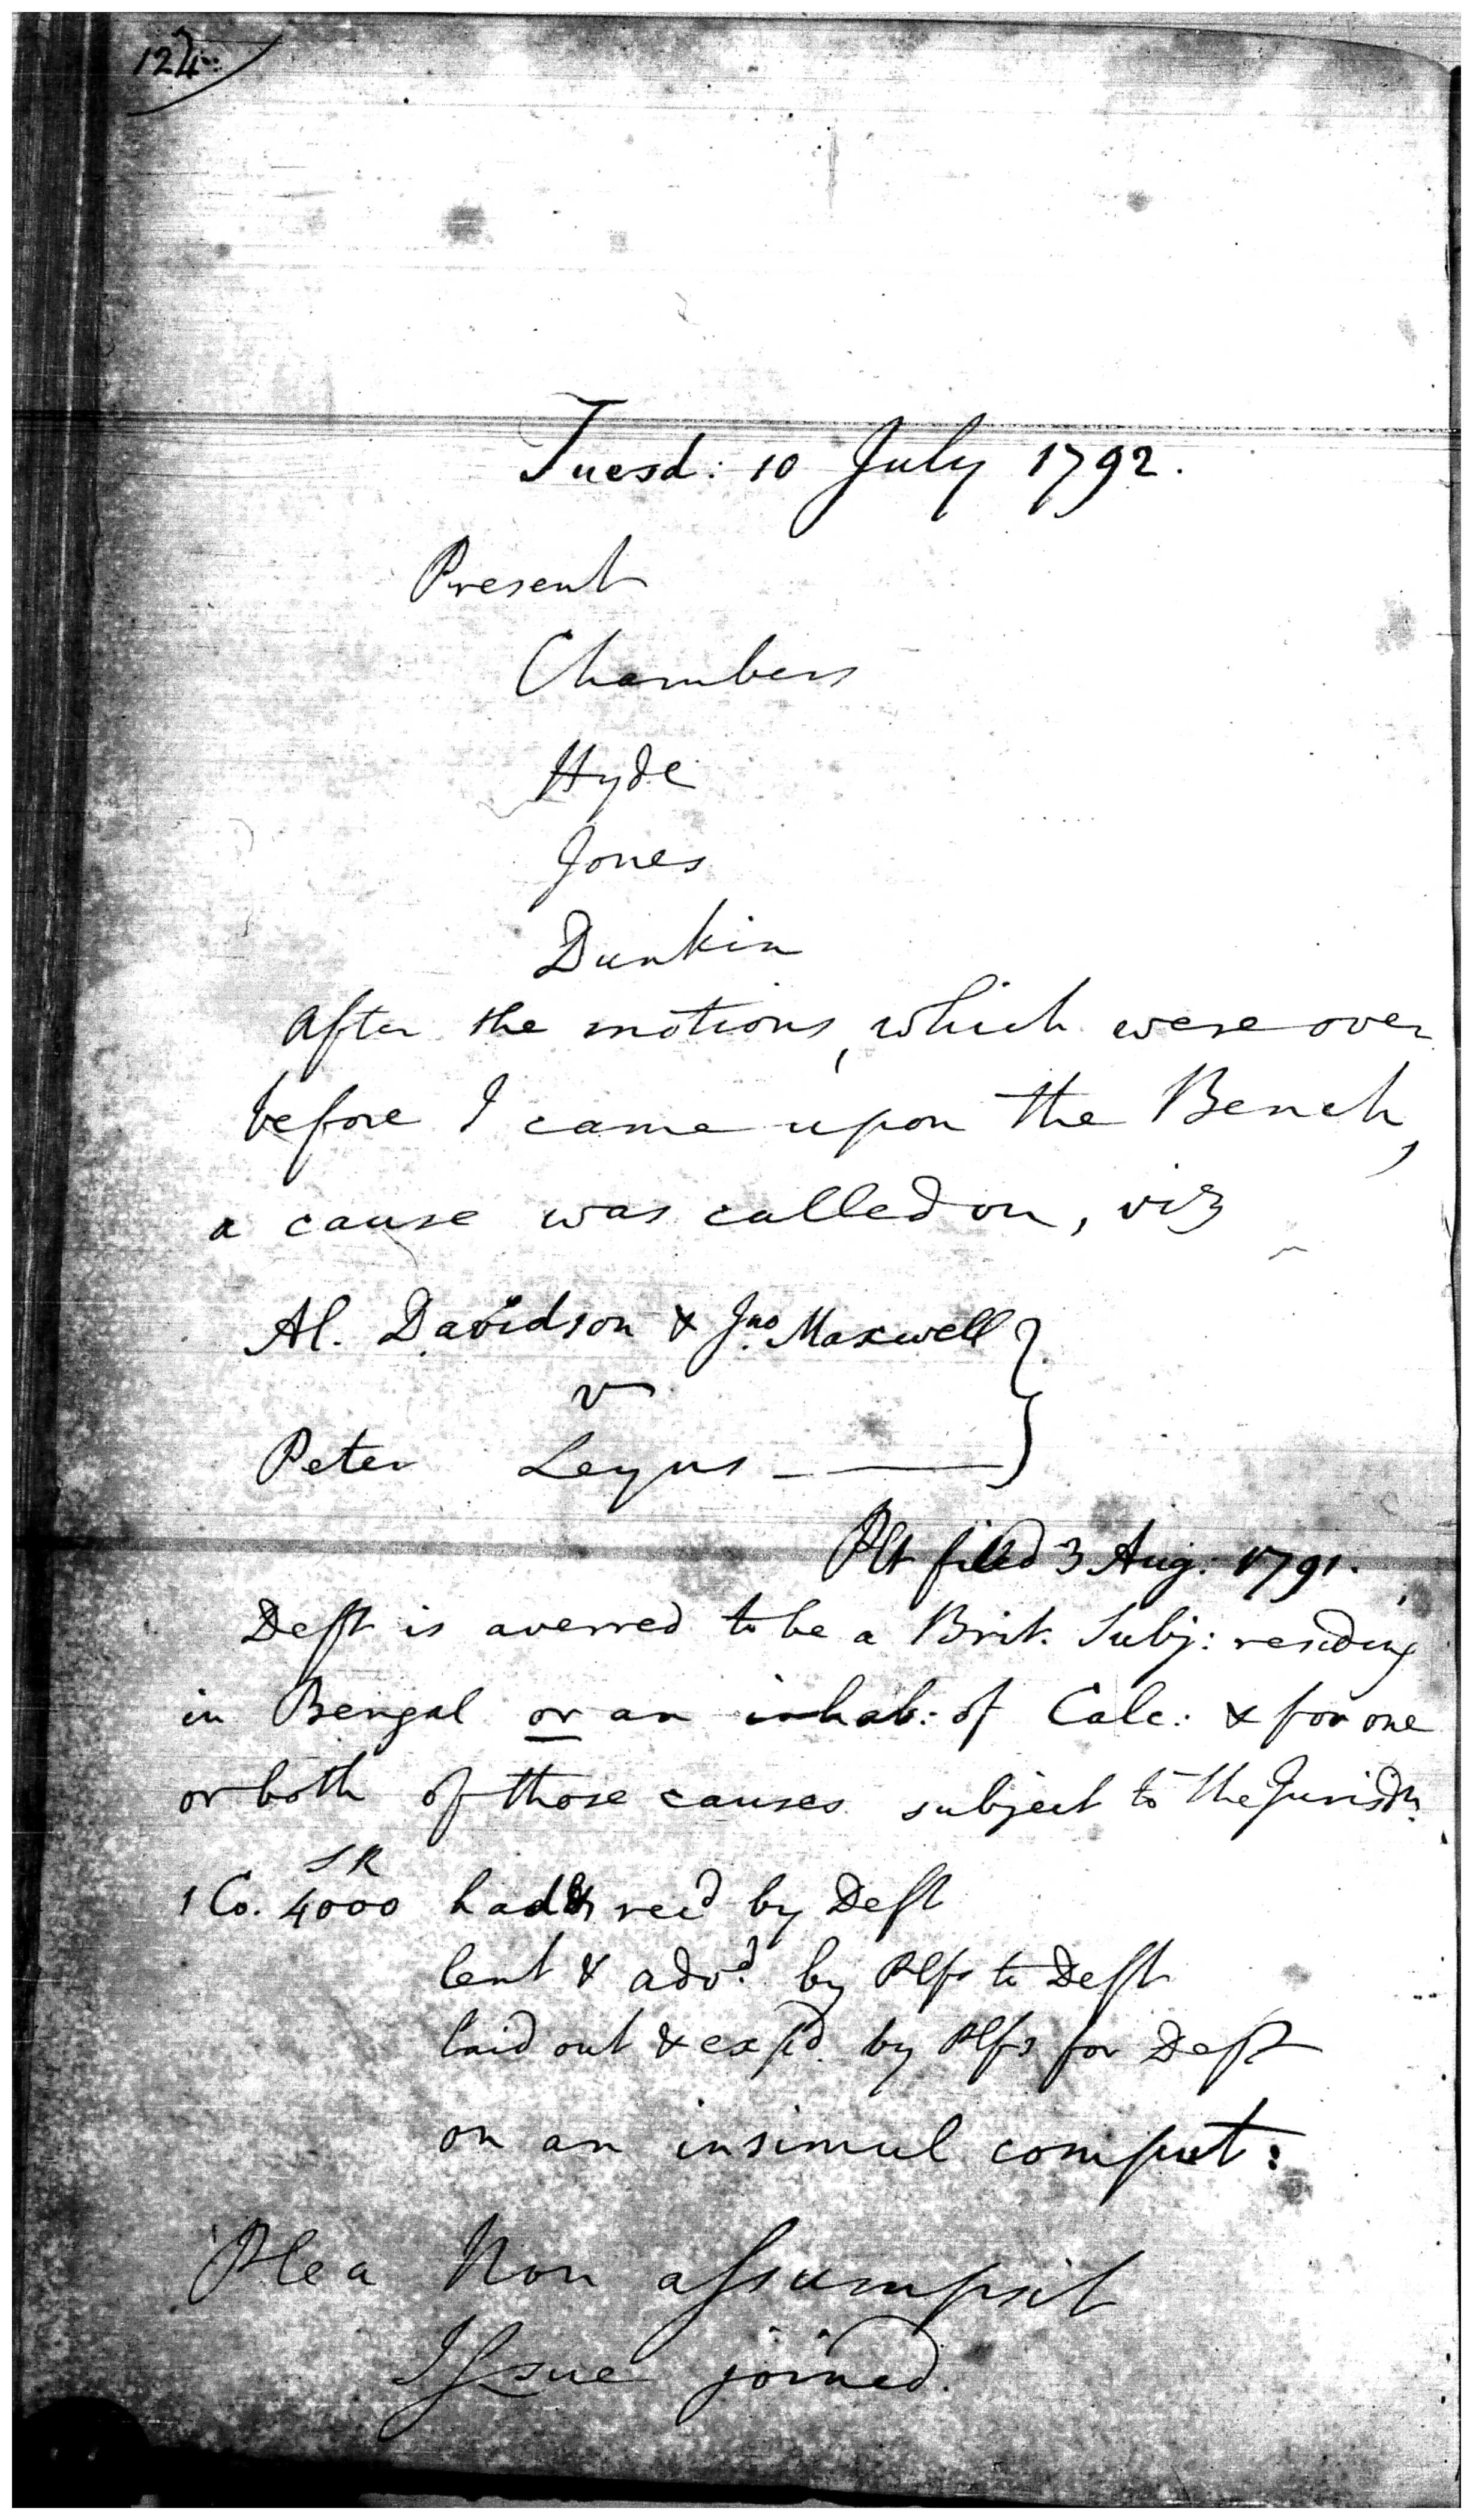 124
Tuesd: 10 July 1792.
Present
Chambers
Hyde
Jones
Dunkin
After the motions, which were over
before I came upon the Bench,
a cause was called on, viz
Al. Davidson & Jno. Maxwell }
v
Peter Leyus - —
Plt filed 3 Aug: 1791.
Deft is averred to be a Brit. Subj: residing
in Bengal or an inhab: of Calc: & for one
or both of those causes subject to the Jurisdn.
SR
1 Co. 4000 had & recd by Deft
lent & advd. by Plfs to Deft
laid out & expd. by Plfs for Deft
on an insimul comput:
Plea Non assumpsit
Issue joined.